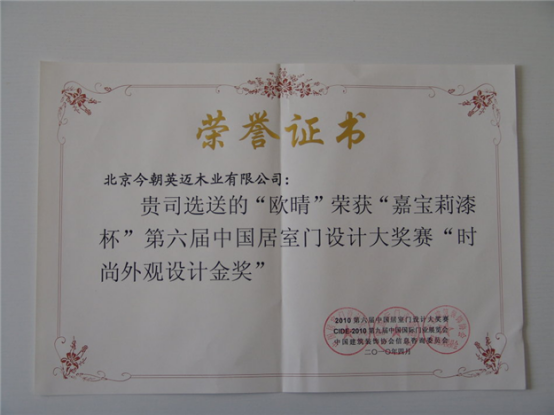 荣誉证书
北京今朝英迈木业有限公司：
贵司选送的“欧晴”荣获“嘉宝莉漆
杯”第六届中国居室门设计大奖赛“时
尚外观设计金奖”
2010 第六届中国居室门设计大奖赛
CIDE 2010 第九届中国国际门业展览会
中国建筑装饰协会信息咨询委员会
二〇一〇年四月